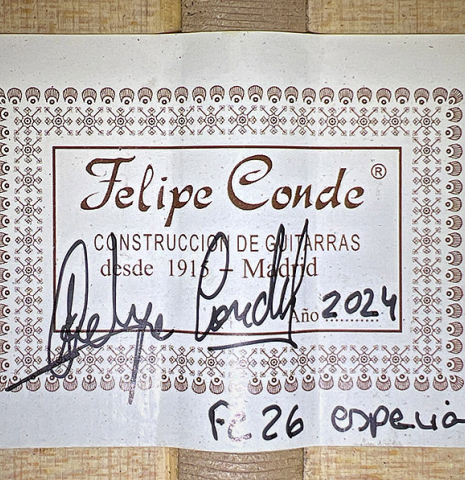 Felipe Conde ®
CONSTRUCCION DE GUITARRAS
desde 1915 – Madrid
Felipe Conde
Año 2024
FC 26 especia